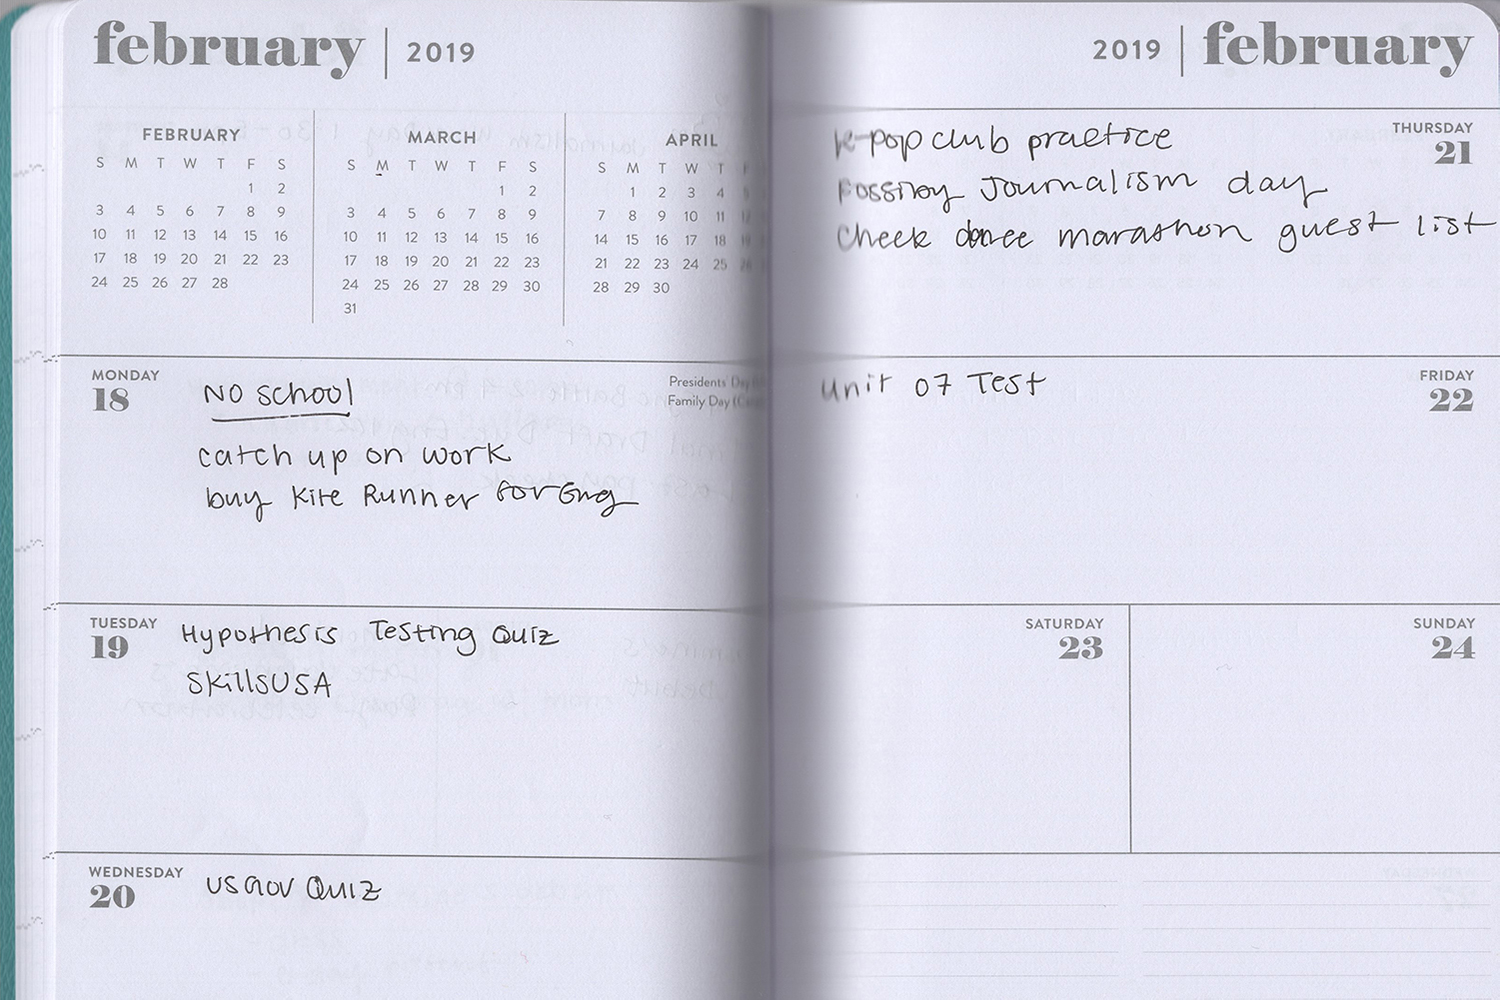 february | 2019
FEBRUARY
S M T W T F S
1 2
3 4 5 6 7 8 9
10 11 12 13 14 15 16
17 18 19 20 21 22 23
24 25 26 27 28
MARCH
S M T W T F S
1 2
3 4 5 6 7 8 9
10 11 12 13 14 15 16
17 18 19 20 21 22 23
24 25 26 27 28 29 30
31
APRIL
S M T W T F
1 2 3 4 5
7 8 9 10 11 12
14 15 16 17 18 19
21 22 23 24 25 26
28 29 30
MONDAY
18
Presidents' Day
Family Day
NO school
catch up on work
buy Kite Runner for Eng
TUESDAY
19
Hypothesis Testing Quiz
SkillsUSA
WEDNESDAY
20
US Gov Quiz
2019 | february
THURSDAY
21
K-pop club practice
Journalism day
Check dance marathon guest list
FRIDAY
22
Unit 07 Test
SATURDAY
23
SUNDAY
24